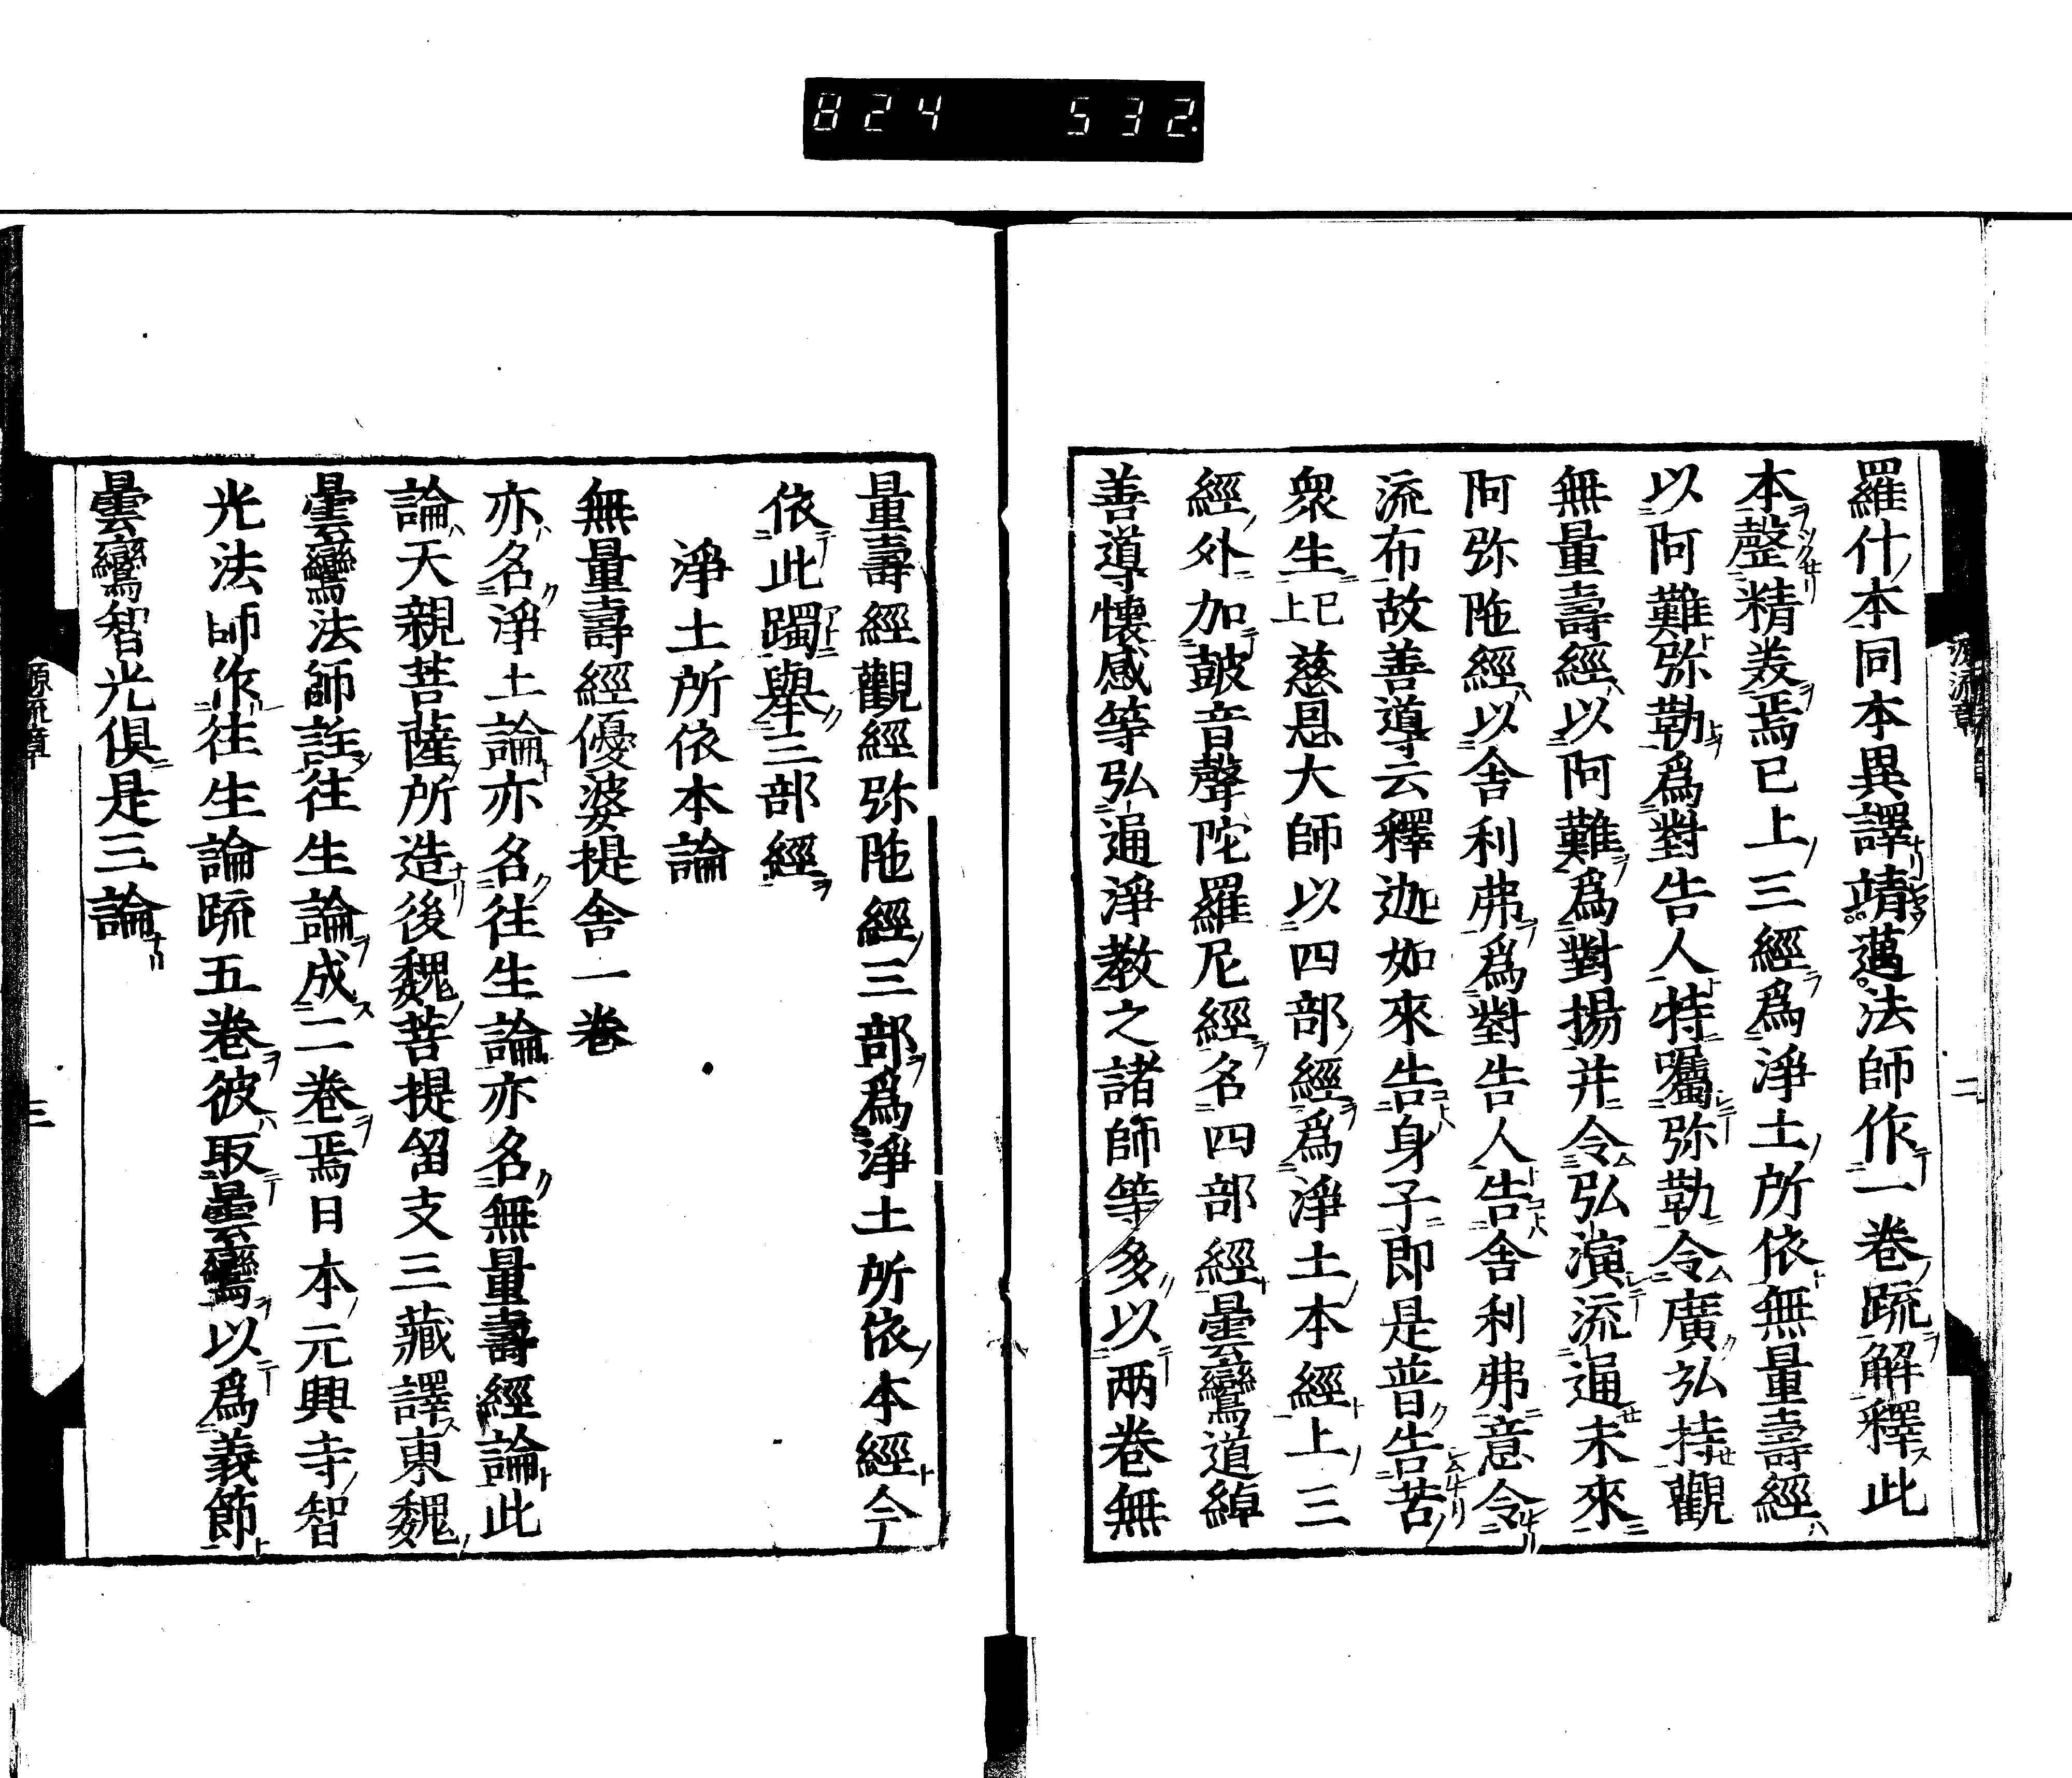 824 532.
羅什本同本異譯靖邁法師作一卷疏解釋此
本罄精美焉已上三經爲淨土所依無量壽經
以阿難弥勒爲對告人特囑弥勒令廣弘持觀
無量壽經以阿難爲對揚并令弘演流通未來
阿弥陁經以舎利弗爲對告人告舎利弗意令
流布故善導云釋迦如來告身子即是普告苦
衆生已上慈恩大師以四部經爲淨土本經上三
經外加鼓音聲陀羅尼經名四部經曇鸞道綽
善導懷感等弘通淨教之諸師等多以兩卷無
量壽經觀經弥陁經三部爲淨土所依本經今
依此躅舉三部經
淨土所依本論
無量壽經優婆提舎一卷
亦名淨土論亦名往生論亦名無量壽經論此
論天親菩薩所造後魏菩提留支三藏譯東魏
曇鸞法師註往生論成二卷焉日本元興寺智
光法師作往生論疏五卷彼取曇鸞以爲義節
曇鸞智光俱是三論
源流章
二
源流章
三